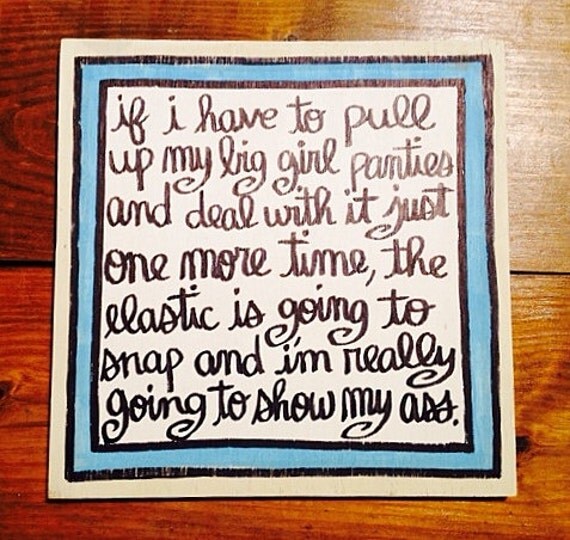 if i have to pull
up my big girl panties
and deal with it just
one more time, the
elastic is going to
snap and i'm really
going to show my ass.